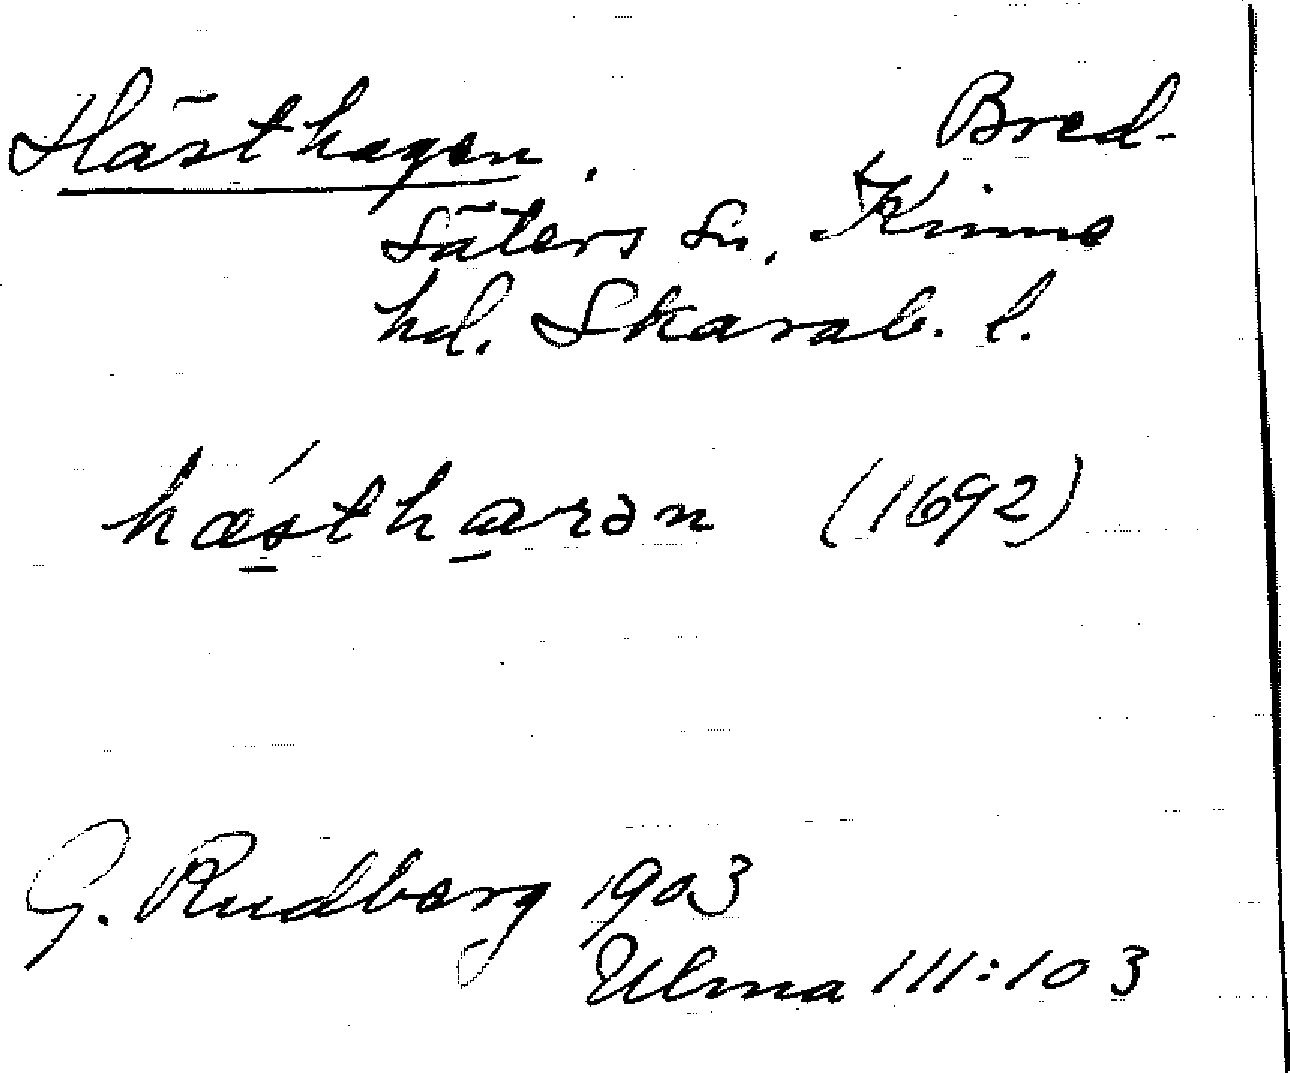 Hästhagen. Bred-
säters sn, Kinne
hd. Skarab. l.
hǽstharən (1692)
G. Rudberg 1903
Ulma 111:103